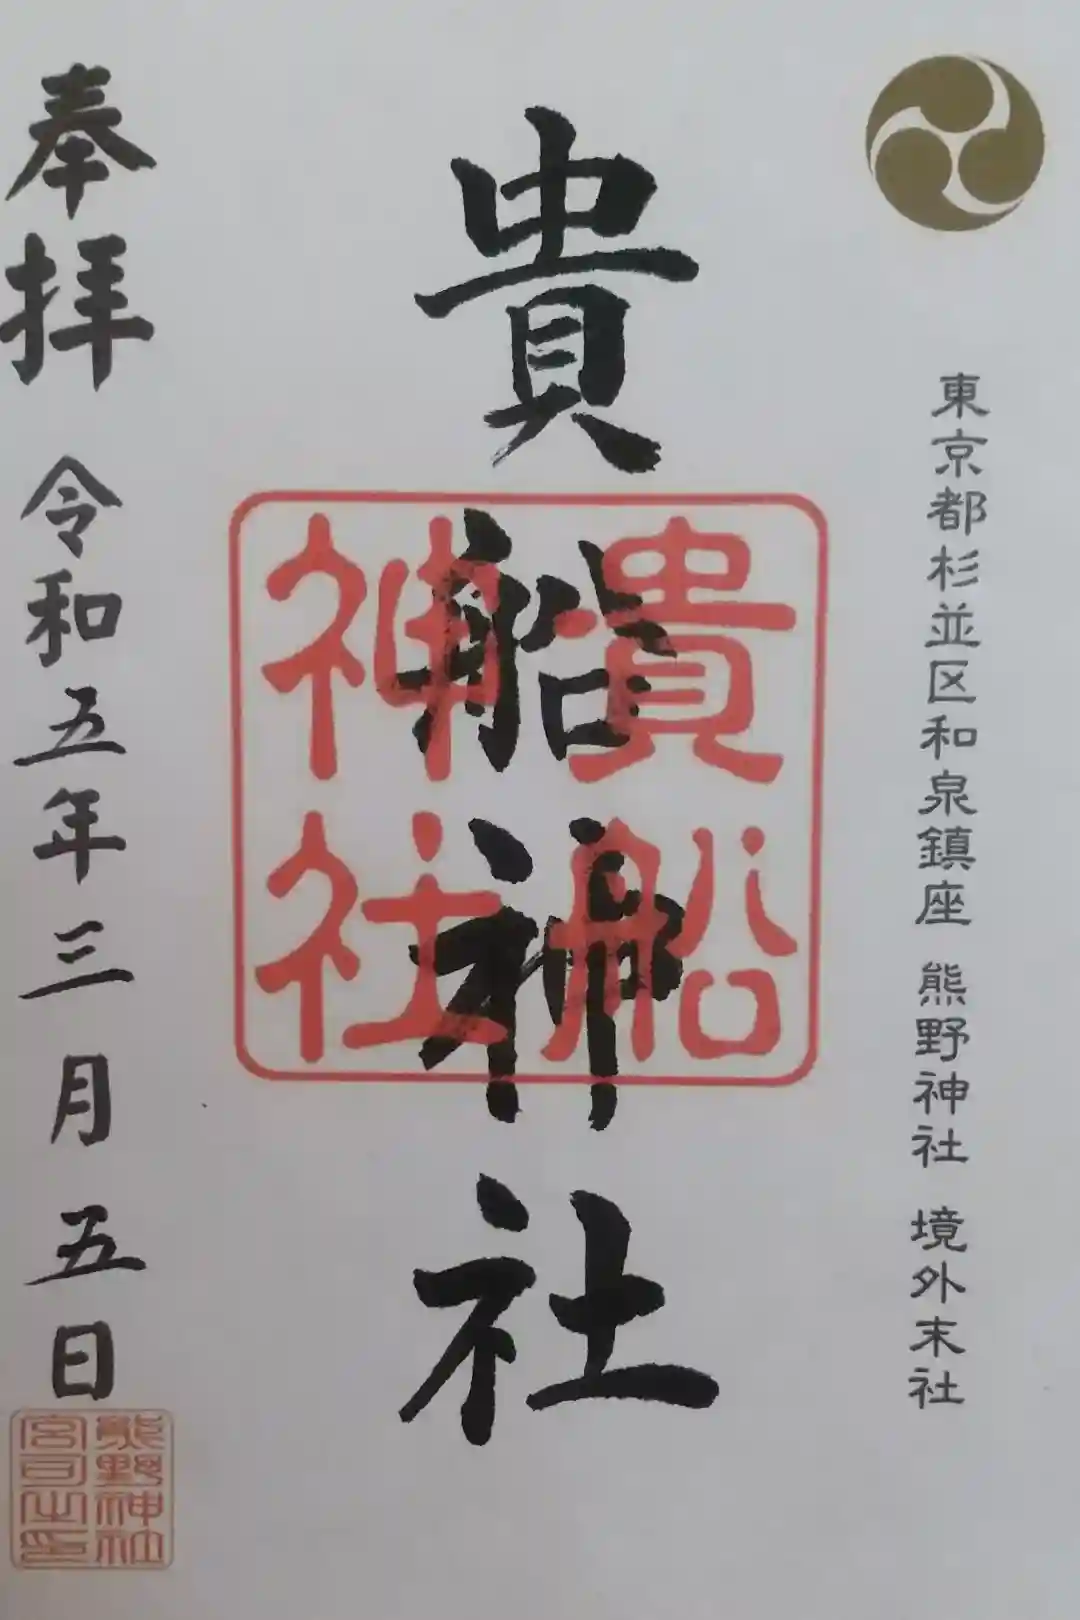 東京都杉並区和泉鎮座 熊野神社 境外末社
貴船神社
貴船
神社
奉拝 令和五年三月五日
熊野神社
宮司之印